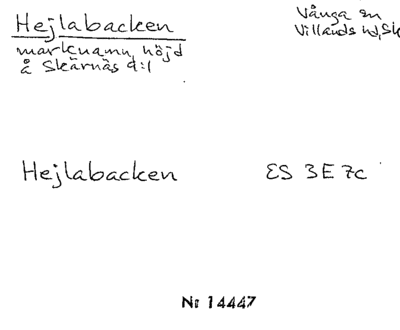 Hejlabacken
marknamn, höjd
å Skärnäs 4:1
Vånga sn
Villands hd, Sk
Hejlabacken
ES 3E 7c
Nr 14447